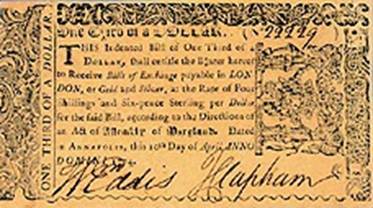 One Third of a DOLLAR. (No 22229
THIS Indented Bill of One Third of a
DOLLAR, shall entitle the Bearer hereof
to Receive Bills of Exchange payable in LON
DON, or Gold and Silver, at the Rate of Four
Shillings and Six-pence Sterling per Dollar
for the said Bill, according to the Directions of
an Act of Assembly of Maryland. Dated
in ANNAPOLIS, this 10th Day of April, ANNO
DOMINI
W Eddis J Clapham
ONE THIRD OF A DOLLAR.